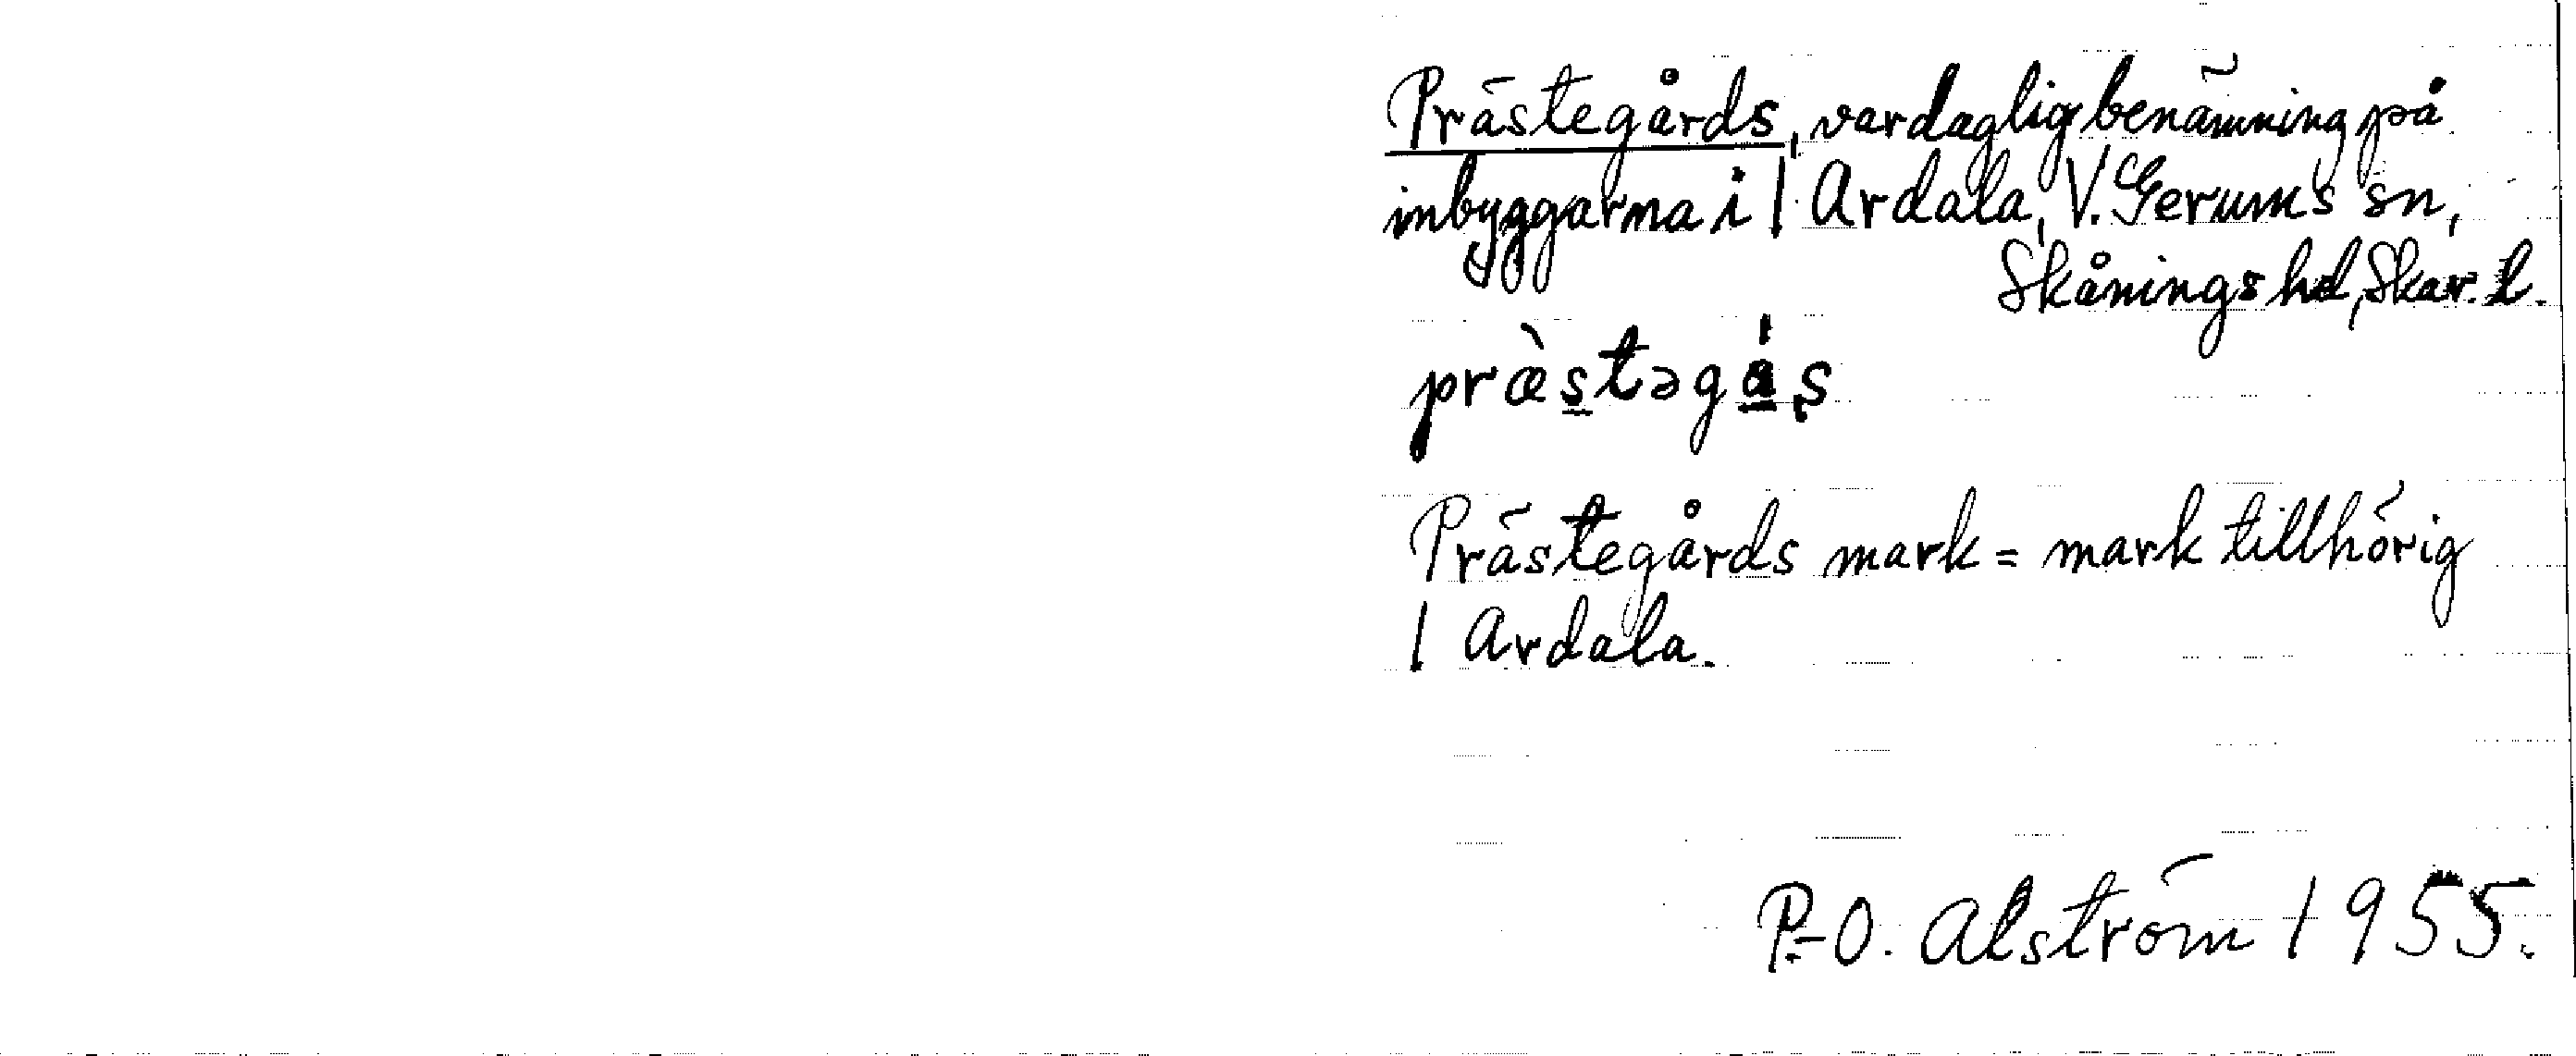 Prästegårds, vardaglig benämning på
inbyggarna i 1 Ardala, V. Gerums sn,
Skånings hd, Skar. l.
præ̀s̲təgá̲ş
Prästegårds mark = mark tillhörig
1 Ardala.
P.-O. Alström 1955.